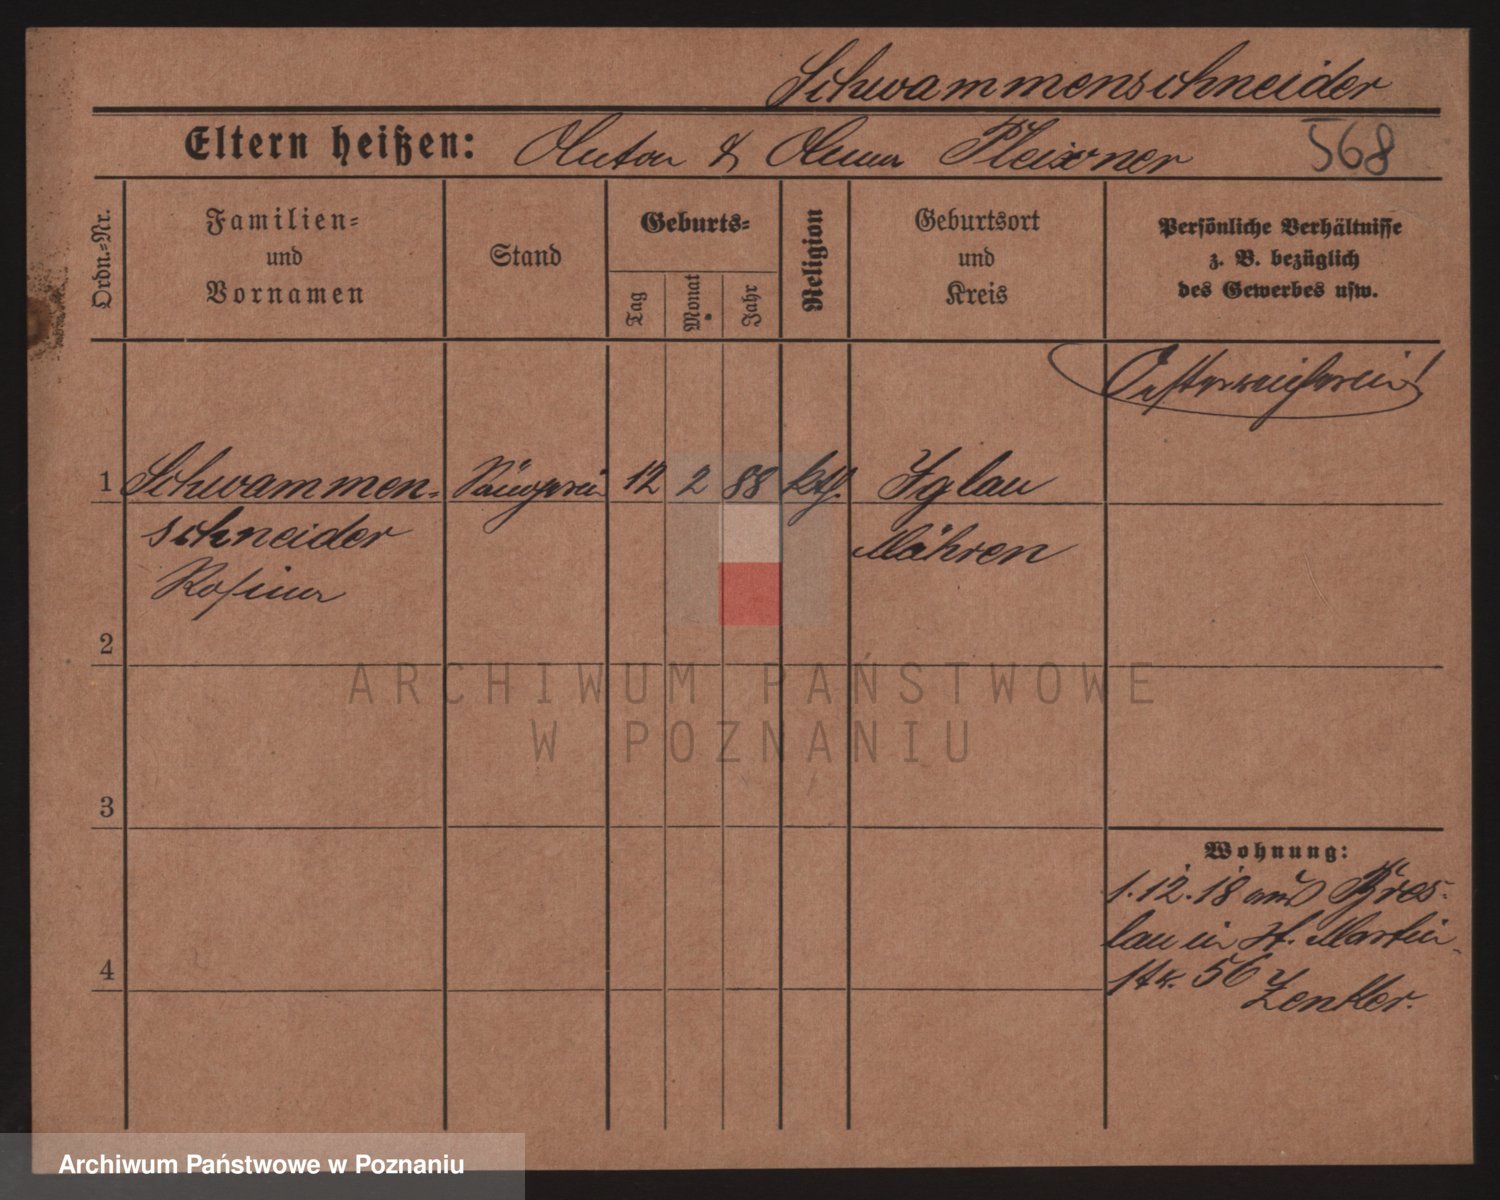 Schwammenschneider
Eltern heißen: Anton & Anna Pleixner 568
Ordn.-Nr.
Familien-
und
Vornamen
Stand
Geburts-
Tag
Monat
Jahr
Religion
Geburtsort
und
Kreis
Persönliche Verhältnisse
z. B. bezüglich
des Gewerbes usw.
Oesterreicherin!
1 Schwammen- Sängerin 12 2 88 kth. Iglau
schneider Mähren
Rosina
2
3
4
Wohnung:
1.12.18 aus Bres-
lau in St. Martin-
str. 56
Zenkler.
ARCHIWUM PAŃSTWOWE
W POZNANIU
Archiwum Państwowe w Poznaniu